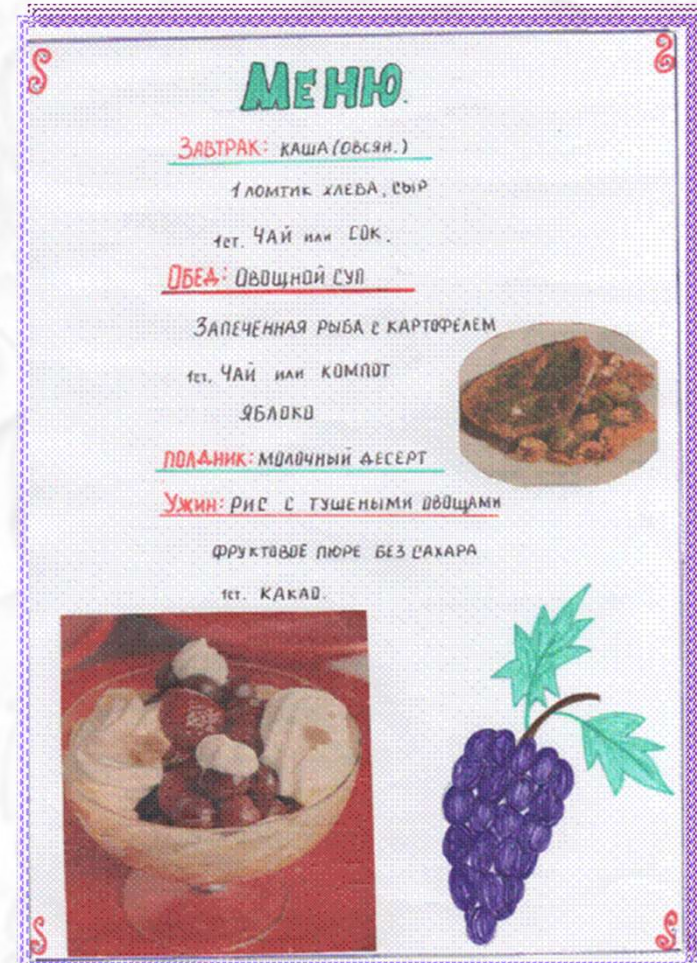 Меню.
Завтрак: каша (овсян.)
1 ломтик хлеба, сыр
1ст. Чай или сок.
Обед: овощной суп
Запеченная рыба с картофелем
1ст. Чай или компот
яблоко
полдник: молочный десерт
Ужин: рис с тушеными овощами
фруктовое пюре без сахара
1ст. какао.